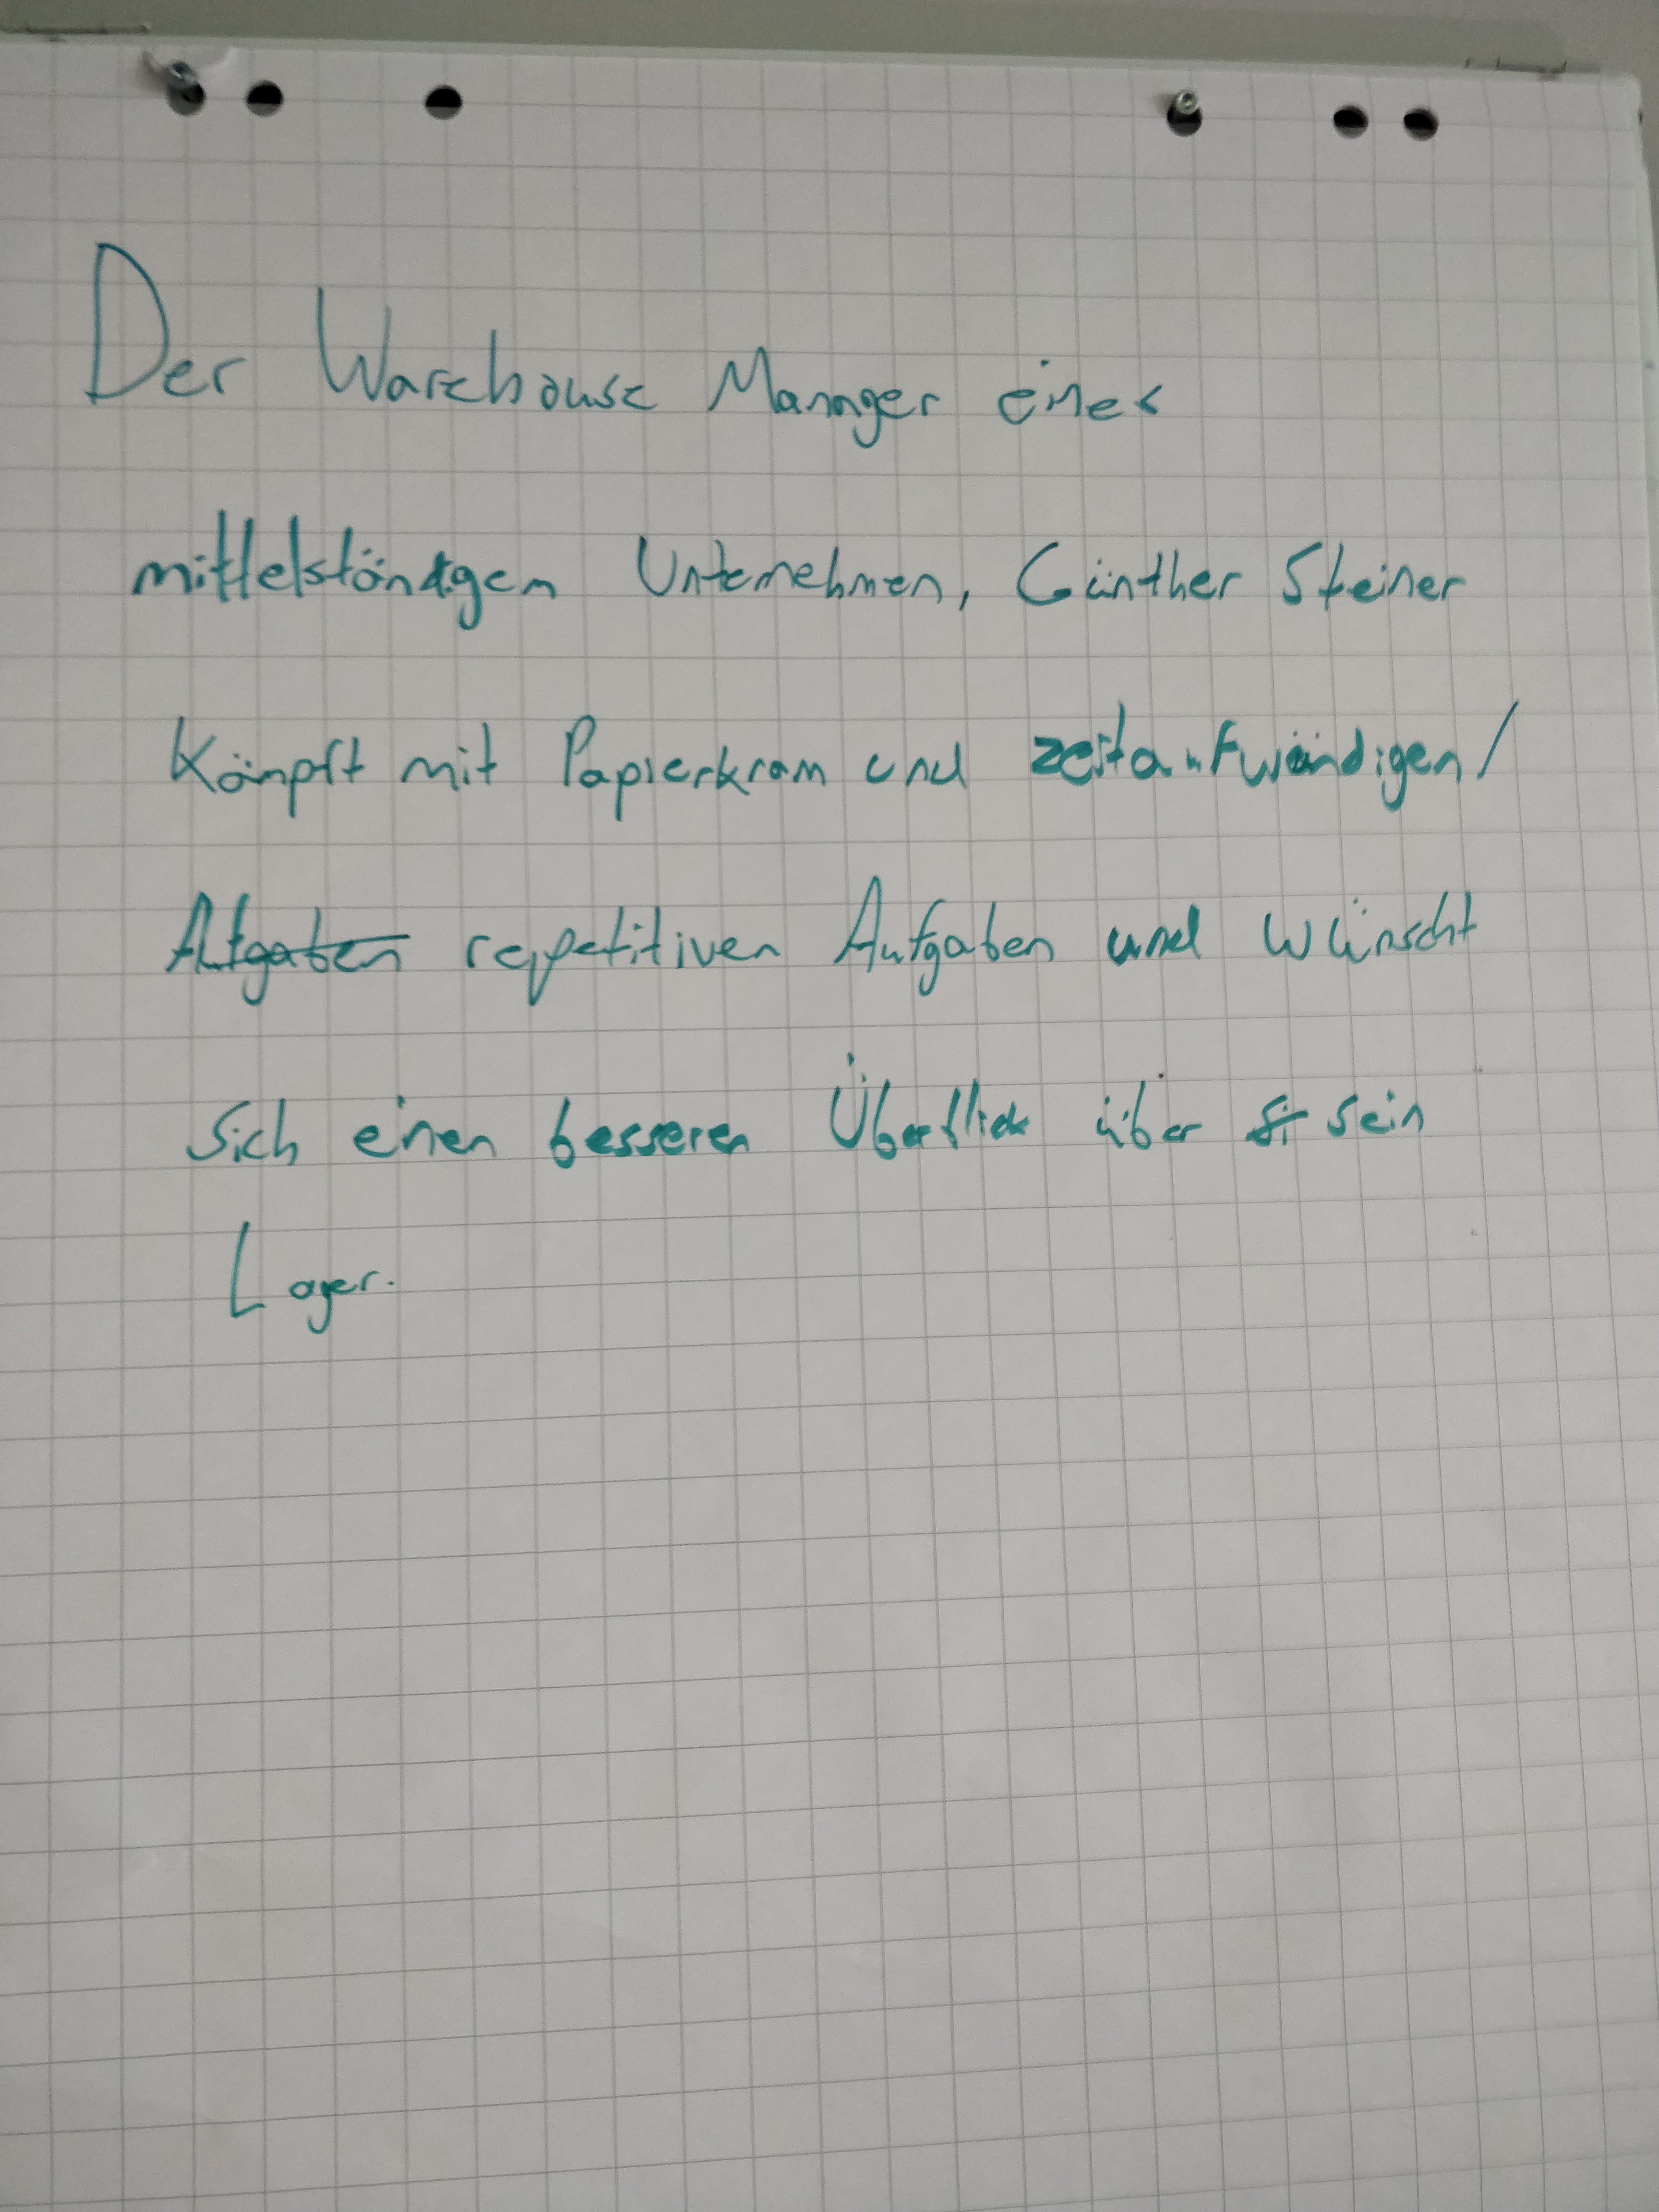 Der Warehouse Manager eines
mittelständigen Unternehmen, Günther Steiner
Kämpft mit Papierkram und zeitaufwändigen/
Aufgaben repetitiven Aufgaben und wünscht
sich einen besseren Überblick über si sein
Lager.